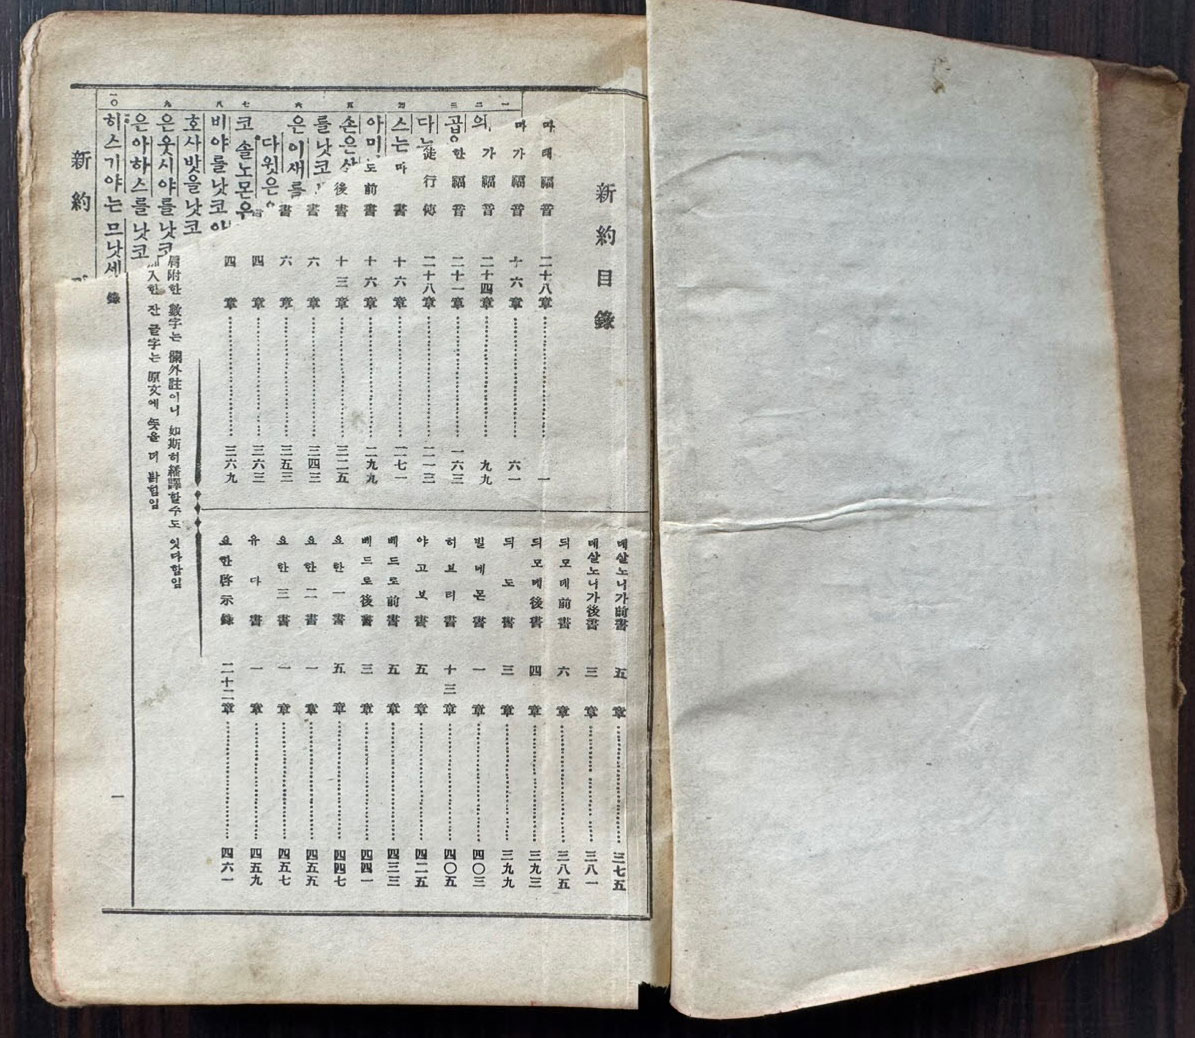 新約目錄
마태福音 二十八章 一
마가福音 十六章 六一
가福音 二十四章 九九
한福音 二十一章 一六三
徒行傳 二十八章 二一三
마書 十六章 二七一
도前書 十六章 二九九
後書 十三章 三二五
書 六章 三四三
書 六章 三五三
書 四章 三六三
四章 三六九
데살노니가前書 五章 三七五
데살노니가後書 三章 三八一
듸모데前書 六章 三八五
듸모데後書 四章 三九三
듸도書 三章 三九九
빌네몬書 一章 四〇三
허브리書 十三章 四〇五
야고보書 五章 四二五
베드로前書 五章 四三三
베드로後書 三章 四四一
요한一書 五章 四四七
요한二書 一章 四五五
요한三書 一章 四五七
유다書 一章 四五九
요한啓示錄 二十二章 四六一
肩附한 數字는 欄外註이니 如斯히 繙譯할수도 잇다함임
入한 잔 글字는 原文에 ᄯᅳᆺ을 더 밝힘임
一 二 三 四 五 六 七 八 九 一〇
의
곱
스는
아미
손은
를낫코
은이새를
다윗은
코 솔노몬우
비야를낫코아
호사밧을낫코
은웃시야를낫코
은아하스를낫코
히스기야는므낫세
新約
錄
一